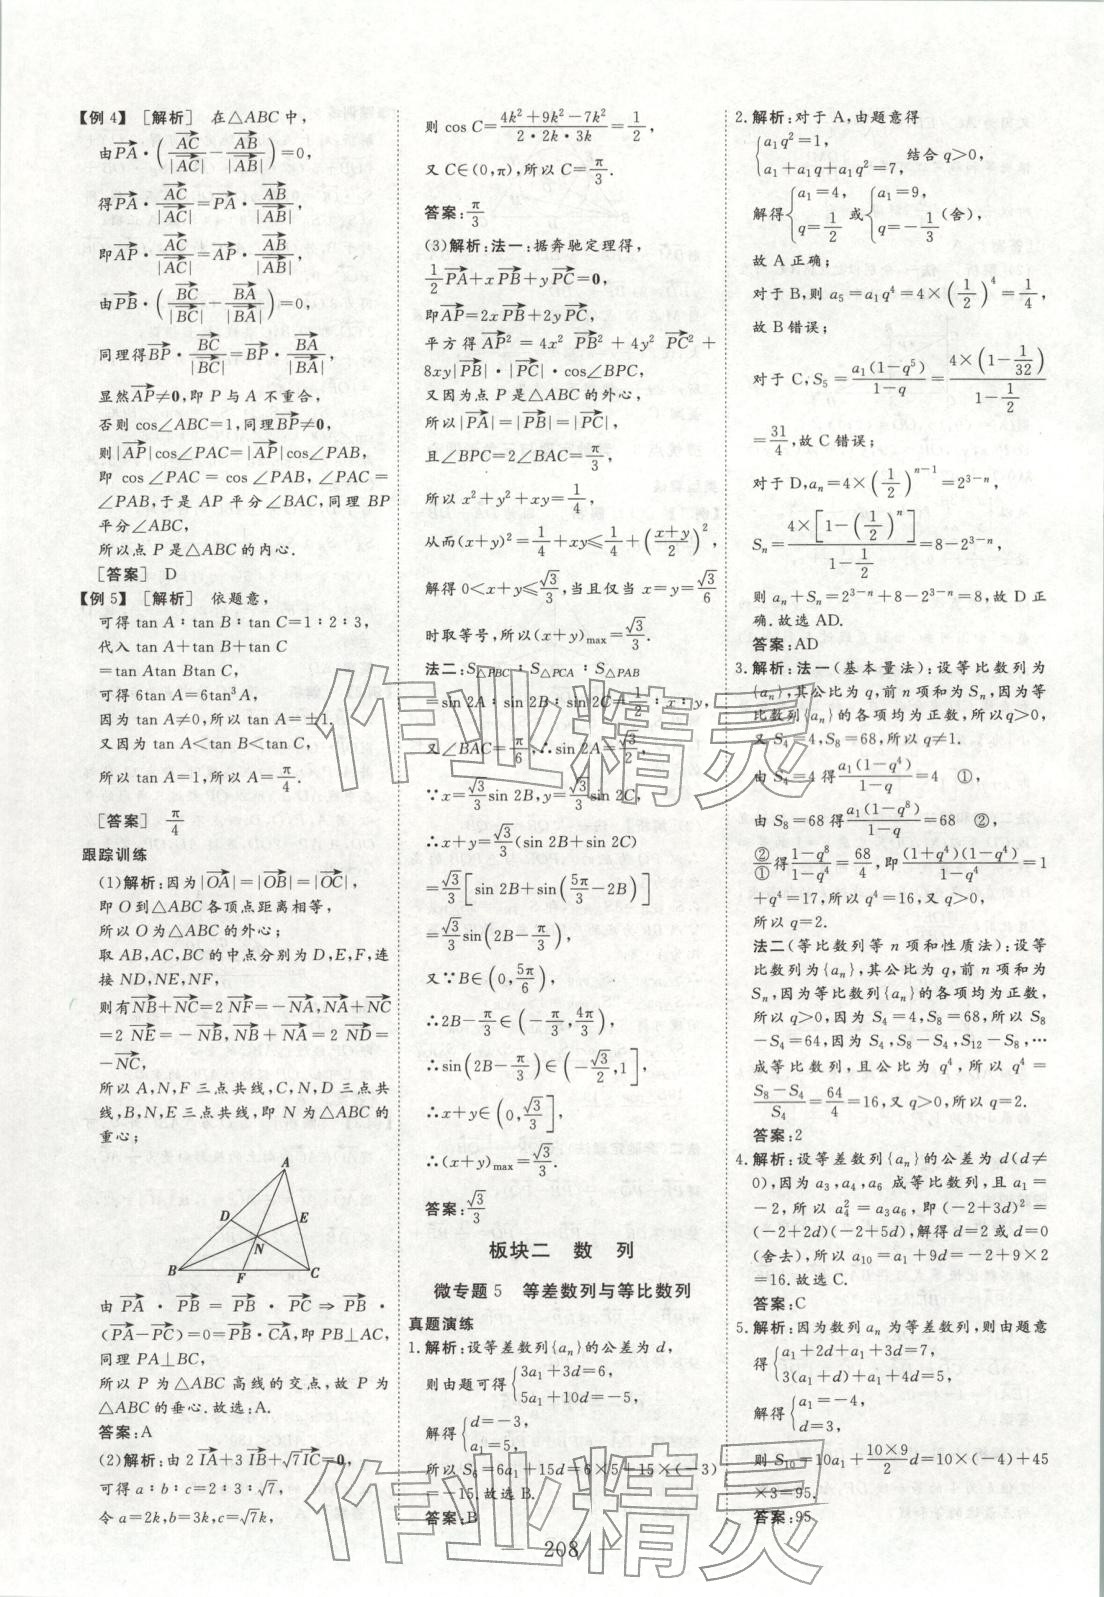 【例4】 [解析] 在△ABC中，
由\overrightarrow{PA}·(\frac{\overrightarrow{AC}}{|\overrightarrow{AC}|}-\frac{\overrightarrow{AB}}{|\overrightarrow{AB}|})=0，
得\overrightarrow{PA}·\frac{\overrightarrow{AC}}{|\overrightarrow{AC}|}=\overrightarrow{PA}·\frac{\overrightarrow{AB}}{|\overrightarrow{AB}|}，
即\overrightarrow{AP}·\frac{\overrightarrow{AC}}{|\overrightarrow{AC}|}=\overrightarrow{AP}·\frac{\overrightarrow{AB}}{|\overrightarrow{AB}|}，
由\overrightarrow{PB}·(\frac{\overrightarrow{BC}}{|\overrightarrow{BC}|}-\frac{\overrightarrow{BA}}{|\overrightarrow{BA}|})=0，
同理得\overrightarrow{BP}·\frac{\overrightarrow{BC}}{|\overrightarrow{BC}|}=\overrightarrow{BP}·\frac{\overrightarrow{BA}}{|\overrightarrow{BA}|}，
显然\overrightarrow{AP}≠0，即 P 与 A 不重合，
否则 cos∠ABC=1，同理\overrightarrow{BP}≠0，
则|\overrightarrow{AP}|cos∠PAC=|\overrightarrow{AP}|cos∠PAB，
即 cos∠PAC = cos∠PAB，∠PAC =
∠PAB，于是 AP 平分∠BAC，同理 BP
平分∠ABC，
所以点 P 是△ABC的内心.
[答案] D
【例5】 [解析] 依题意，
可得 tan A∶tan B∶tan C=1∶2∶3，
代入 tan A+tan B+tan C
=tan Atan Btan C，
可得 6tan A=6tan³A，
因为 tan A≠0，所以 tan A=±1.
又因为 tan A<tan B<tan C，
所以 tan A=1，所以 A=\frac{π}{4}.
[答案] \frac{π}{4}
跟踪训练
(1)解析：因为|\overrightarrow{OA}|=|\overrightarrow{OB}|=|\overrightarrow{OC}|，
即 O 到△ABC 各顶点距离相等，
所以 O 为△ABC 的外心；
取 AB,AC,BC 的中点分别为 D,E,F，连
接 ND,NE,NF，
则有\overrightarrow{NB}+\overrightarrow{NC}=2\overrightarrow{NF}=-\overrightarrow{NA}，\overrightarrow{NA}+\overrightarrow{NC}
=2\overrightarrow{NE}=-\overrightarrow{NB}，\overrightarrow{NB}+\overrightarrow{NA}=2\overrightarrow{ND}=
-\overrightarrow{NC}，
所以 A,N,F 三点共线，C,N,D 三点共
线，B,N,E 三点共线，即 N 为△ABC 的
重心；
A
D
E
N
B
F
C
由 \overrightarrow{PA}·\overrightarrow{PB}=\overrightarrow{PB}·\overrightarrow{PC}⇒\overrightarrow{PB}·
(\overrightarrow{PA}-\overrightarrow{PC})=0=\overrightarrow{PB}·\overrightarrow{CA}，即 PB⊥AC，
同理 PA⊥BC，
所以 P 为△ABC 高线的交点，故 P 为
△ABC 的垂心.故选：A.
答案：A
(2)解析：由 2\overrightarrow{IA}+3\overrightarrow{IB}+√7\overrightarrow{IC}=0，
可得 a∶b∶c=2∶3∶√7，
令 a=2k,b=3k,c=√7k，
则 cos C=\frac{4k²+9k²-7k²}{2·2k·3k}=\frac{1}{2}，
又 C∈(0,π)，所以 C=\frac{π}{3}.
答案：\frac{π}{3}
(3)解析：法一：据奔驰定理得，
\frac{1}{2}\overrightarrow{PA}+x\overrightarrow{PB}+y\overrightarrow{PC}=0，
即\overrightarrow{AP}=2x\overrightarrow{PB}+2y\overrightarrow{PC}，
平方得\overrightarrow{AP}²=4x²\overrightarrow{PB}²+4y²\overrightarrow{PC}²+
8xy|\overrightarrow{PB}|·|\overrightarrow{PC}|·cos∠BPC，
又因为点 P 是△ABC的外心，
所以|\overrightarrow{PA}|=|\overrightarrow{PB}|=|\overrightarrow{PC}|，
且∠BPC=2∠BAC=\frac{π}{3}，
所以 x²+y²+xy=\frac{1}{4}，
从而(x+y)²=\frac{1}{4}+xy≤\frac{1}{4}+(\frac{x+y}{2})²，
解得 0<x+y≤\frac{√3}{3}，当且仅当 x=y=\frac{√3}{6}
时取等号，所以(x+y)_{max}=\frac{√3}{3}.
法二：S_{△PBC}∶S_{△PCA}∶S_{△PAB}
=sin 2A∶sin 2B∶sin 2C=\frac{1}{2}∶x∶y，
又∠BAC=\frac{π}{6}，∴sin 2A=\frac{√3}{2}，
∵x=\frac{√3}{3}sin 2B，y=\frac{√3}{3}sin 2C，
∴x+y=\frac{√3}{3}(sin 2B+sin 2C)
=\frac{√3}{3}[sin 2B+sin(\frac{5π}{3}-2B)]
=\frac{√3}{3}sin(2B-\frac{π}{3})，
又∵B∈(0,\frac{5π}{6})，
∴2B-\frac{π}{3}∈(-\frac{π}{3},\frac{4π}{3})，
∴sin(2B-\frac{π}{3})∈(-\frac{√3}{2},1]，
∴x+y∈(0,\frac{√3}{3}]，
∴(x+y)_{max}=\frac{√3}{3}.
答案：\frac{√3}{3}
板块二 数 列
微专题5 等差数列与等比数列
真题演练
1.解析：设等差数列{a_n}的公差为 d，
则由题可得{3a₁+3d=6, 5a₁+10d=-5，
解得{d=-3, a₁=5，
所以 S₆=6a₁+15d=6×5+15×(-3)
=-15.故选 B.
答案：B
2.解析：对于 A，由题意得
{a₁q²=1, a₁+a₁q+a₁q²=7， 结合 q>0，
解得{a₁=4, q=\frac{1}{2} 或{a₁=9, q=-\frac{1}{3}(舍)，
故 A 正确；
对于 B，则 a₅=a₁q⁴=4×(\frac{1}{2})⁴=\frac{1}{4}，
故 B 错误；
对于 C，S₅=\frac{a₁(1-q⁵)}{1-q}=\frac{4×(1-\frac{1}{32})}{1-\frac{1}{2}}
=\frac{31}{4}，故 C 错误；
对于 D，a_n=4×(\frac{1}{2})^{n-1}=2^{3-n}，
S_n=\frac{4×[1-(\frac{1}{2})^n]}{1-\frac{1}{2}}=8-2^{3-n}，
则 a_n+S_n=2^{3-n}+8-2^{3-n}=8，故 D 正
确.故选 AD.
答案：AD
3.解析：法一(基本量法)：设等比数列为
{a_n}，其公比为 q，前 n 项和为 S_n，因为等
比数列{a_n}的各项均为正数，所以q>0，
又 S₄=4，S₈=68，所以 q≠1.
由 S₄=4 得\frac{a₁(1-q⁴)}{1-q}=4 ①，
由 S₈=68 得\frac{a₁(1-q⁸)}{1-q}=68 ②，
\frac{②}{①}得\frac{1-q⁸}{1-q⁴}=\frac{68}{4}，即\frac{(1+q⁴)(1-q⁴)}{1-q⁴}=1
+q⁴=17，所以 q⁴=16，又 q>0，
所以 q=2.
法二(等比数列等 n 项和性质法)：设等
比数列为{a_n}，其公比为 q，前 n 项和为
S_n，因为等比数列{a_n}的各项均为正数，
所以 q>0，因为 S₄=4，S₈=68，所以 S₈
-S₄=64，因为 S₄，S₈-S₄，S₁₂-S₈，…
成等比数列，且公比为 q⁴，所以 q⁴=
\frac{S₈-S₄}{S₄}=\frac{64}{4}=16，又 q>0，所以 q=2.
答案：2
4.解析：设等差数列{a_n}的公差为 d(d≠
0)，因为 a₃,a₄,a₆ 成等比数列，且 a₁=
-2，所以 a₄²=a₃a₆，即(-2+3d)²=
(-2+2d)(-2+5d)，解得 d=2 或 d=0
(舍去)，所以 a₁₀=a₁+9d=-2+9×2
=16.故选 C.
答案：C
5.解析：因为数列 a_n 为等差数列，则由题意
得{a₁+2d+a₁+3d=7, 3(a₁+d)+a₁+4d=5，
解得{a₁=-4, d=3，
则 S₁₀=10a₁+\frac{10×9}{2}d=10×(-4)+45
×3=95.
答案：95
208
作业精灵
作业精灵